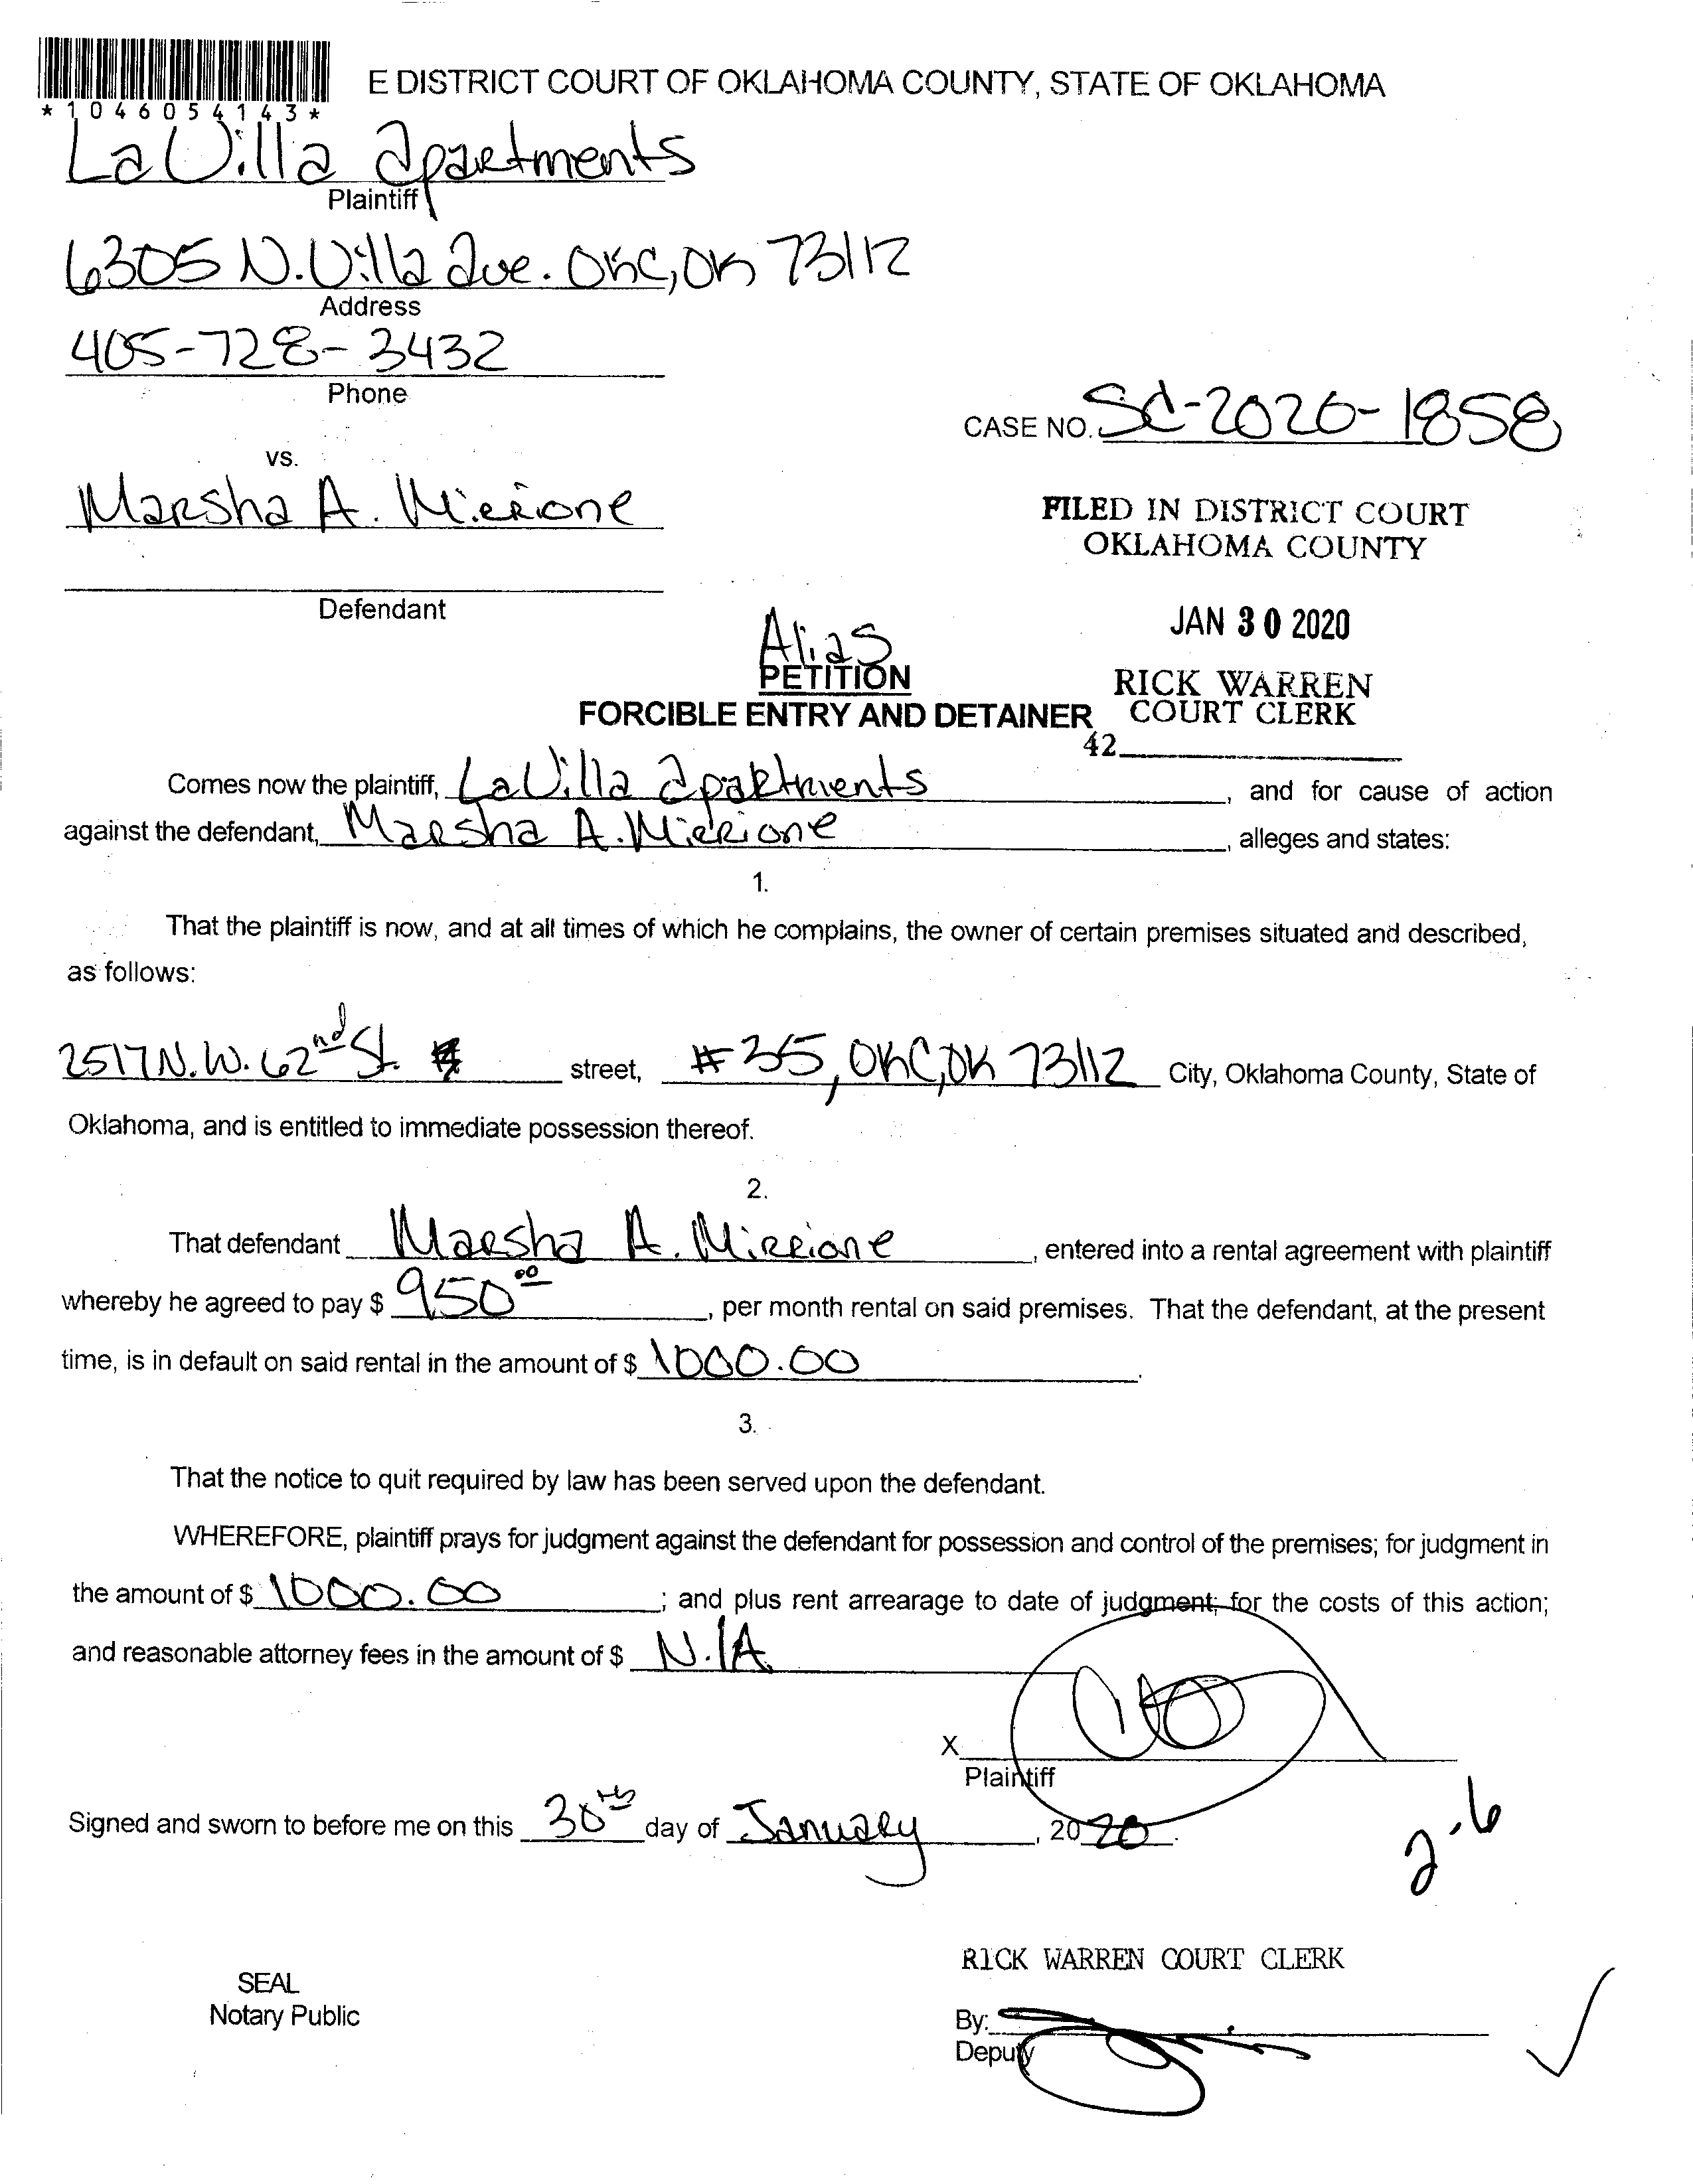 E DISTRICT COURT OF OKLAHOMA COUNTY, STATE OF OKLAHOMA
*1046054143*
LaVilla apartments
Plaintiff
6305 N. Villa Ave. OKC, OK 73112
Address
405-728-3432
Phone
CASE NO. SC-2020-1858
vs.
Marsha A. Mirrione
FILED IN DISTRICT COURT
OKLAHOMA COUNTY
Defendant
JAN 30 2020
Alias
PETITION
RICK WARREN
FORCIBLE ENTRY AND DETAINER COURT CLERK
42
Comes now the plaintiff, LaVilla apartments, and for cause of action
against the defendant, Marsha A. Mirrione, alleges and states:
1.
That the plaintiff is now, and at all times of which he complains, the owner of certain premises situated and described,
as follows:
2517 N.W. 62nd St. street, #35, OKC, OK 73112 City, Oklahoma County, State of
Oklahoma, and is entitled to immediate possession thereof.
2.
That defendant Marsha A. Mirrione, entered into a rental agreement with plaintiff
whereby he agreed to pay $ 950.00, per month rental on said premises. That the defendant, at the present
time, is in default on said rental in the amount of $ 1000.00.
3.
That the notice to quit required by law has been served upon the defendant.
WHEREFORE, plaintiff prays for judgment against the defendant for possession and control of the premises; for judgment in
the amount of $ 1000.00; and plus rent arrearage to date of judgment; for the costs of this action;
and reasonable attorney fees in the amount of $ N/A
X
Plaintiff
Signed and sworn to before me on this 30th day of January, 2020.
2-6
RICK WARREN COURT CLERK
SEAL
Notary Public
By:
Deputy